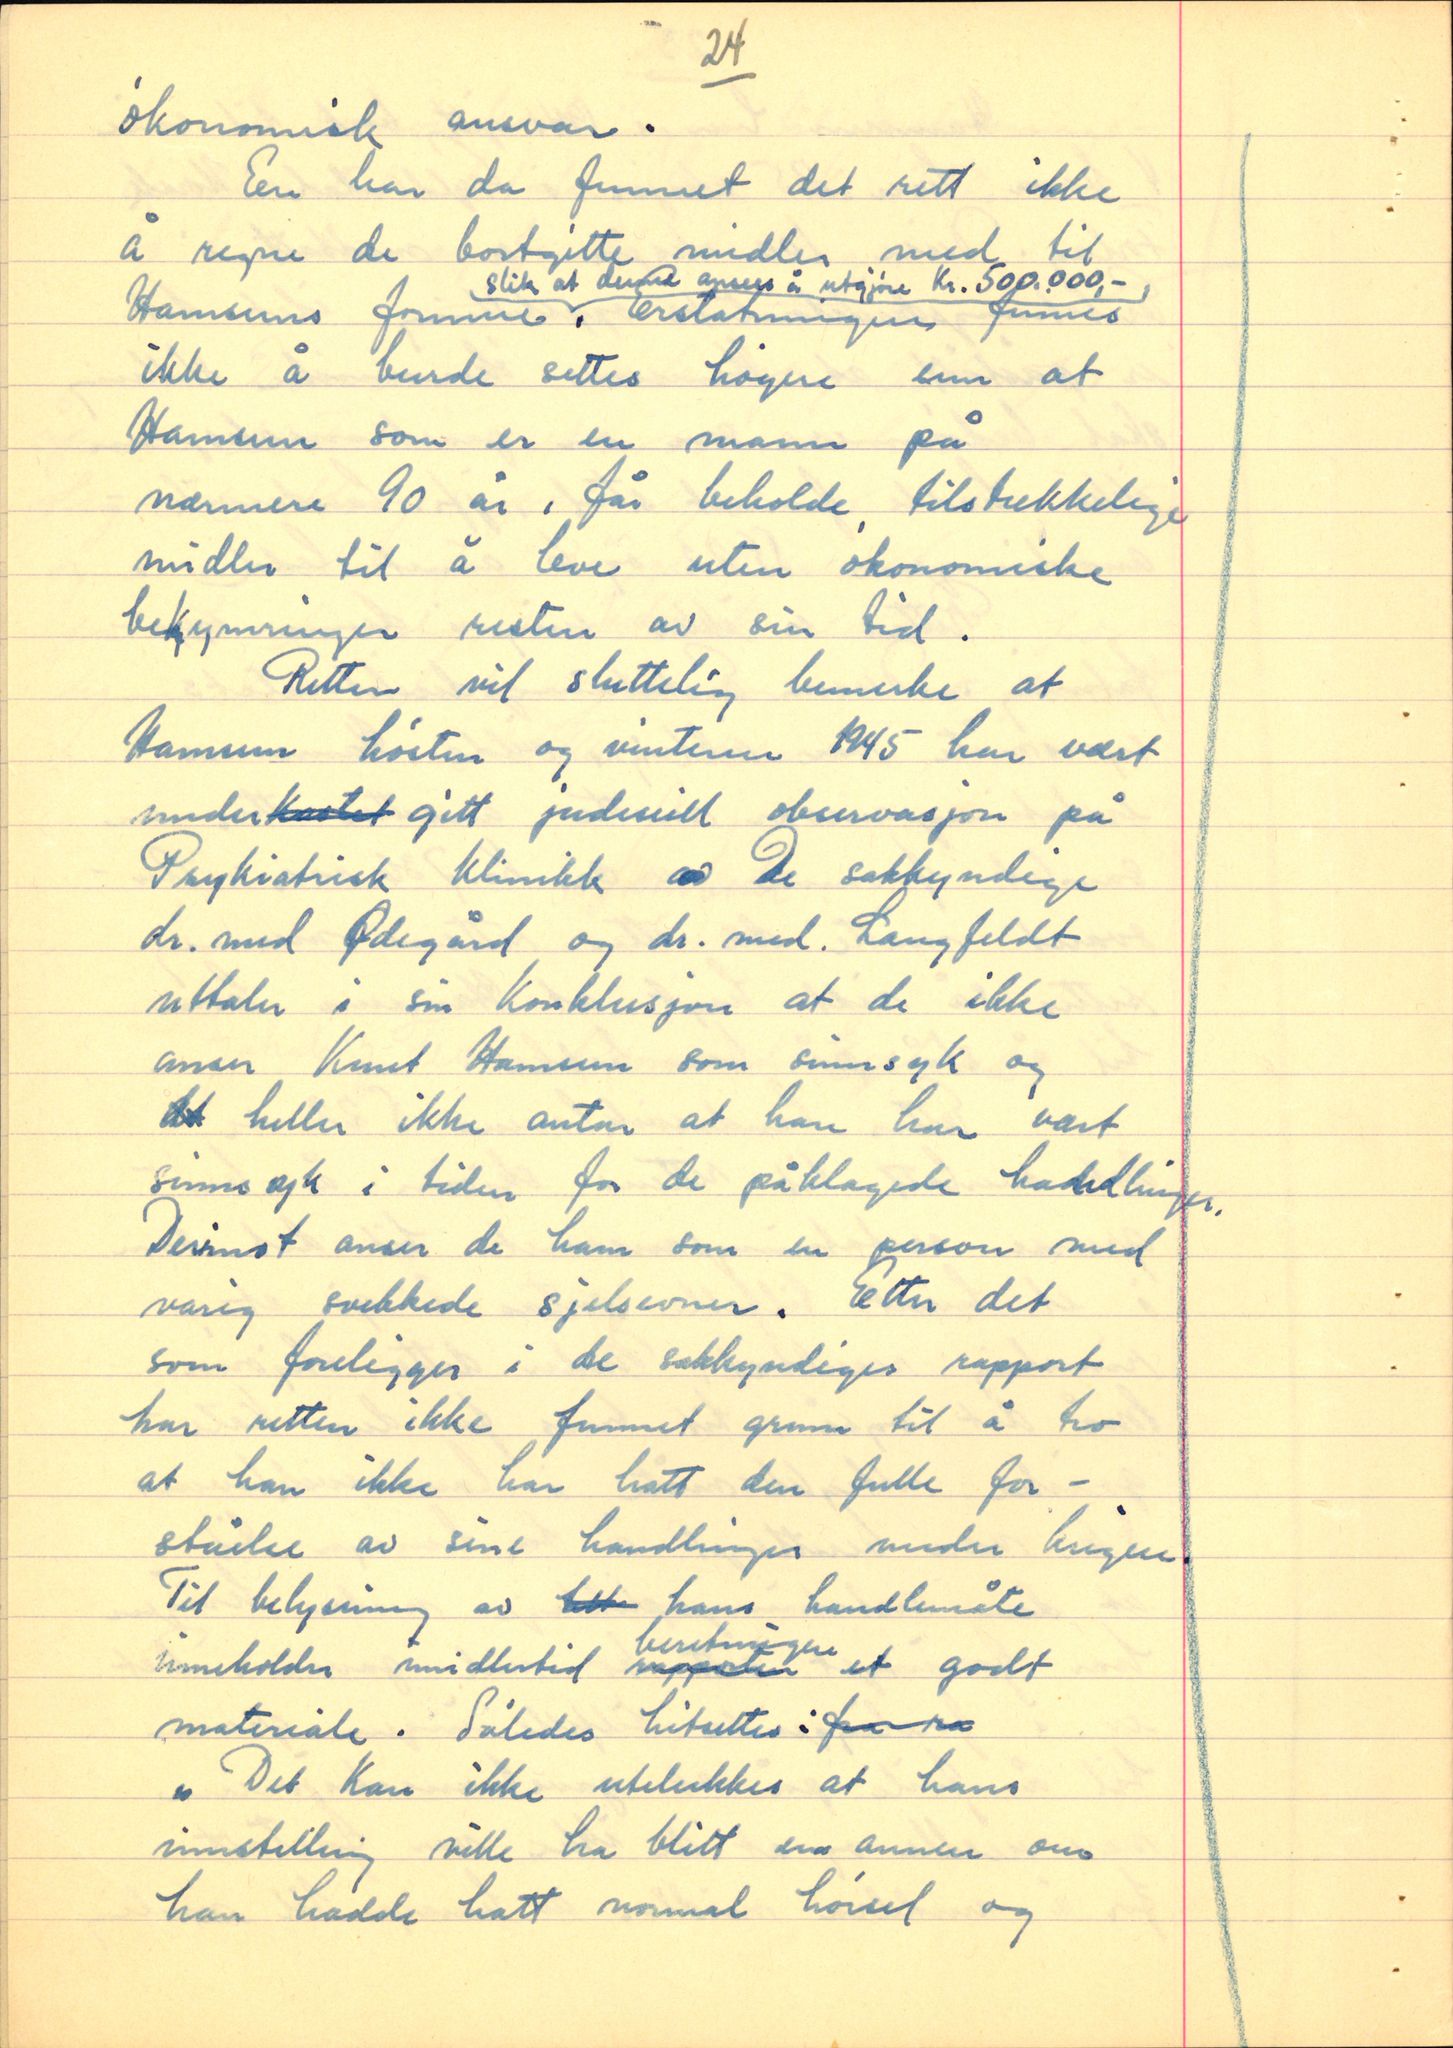 24
økonomisk ansvar.
Een har da funnet det rett ikke
å regne de bortgitte midler med til
slik at denne ansees å utgjøre Kr. 500.000,-
Hamsuns formue. Erstatningen finnes
ikke å burde settes høgere enn at
Hamsun som er en mann på
nærmere 90 år, får beholde tilstrekkelige
midler til å leve uten økonomiske
bekymringer resten av sin tid.
Retten vil sluttelig bemerke at
Hamsun høsten og vinteren 1945 har vært
underkastet gitt judisiell observasjon på
Psykiatrisk Klinikk De sakkyndige
dr. med Ødegård og dr. med. Langfeldt
uttaler i sin Konklusjon at de ikke
anser Knut Hamsun som sinnsyk og
heller ikke antar at han har vært
sinnssyk i tiden for de påklagede handlinger.
Derimot anser de ham som en person med
varig svekkede sjelsevner. Etter det
som foreligger i de sakkyndiges rapport
har retten ikke funnet grunn til å tro
at han ikke har hatt den fulle for-
ståelse av sine handlinger under krigen.
Til belysning av hans handlemåte
beretningen
inneholder imidlertid rapporten et godt
materiale. Således hitsettes: fra ra
„Det Kan ikke utelukkes at hans
innstilling ville ha blitt en annen om
han hadde hatt normal hørsel og